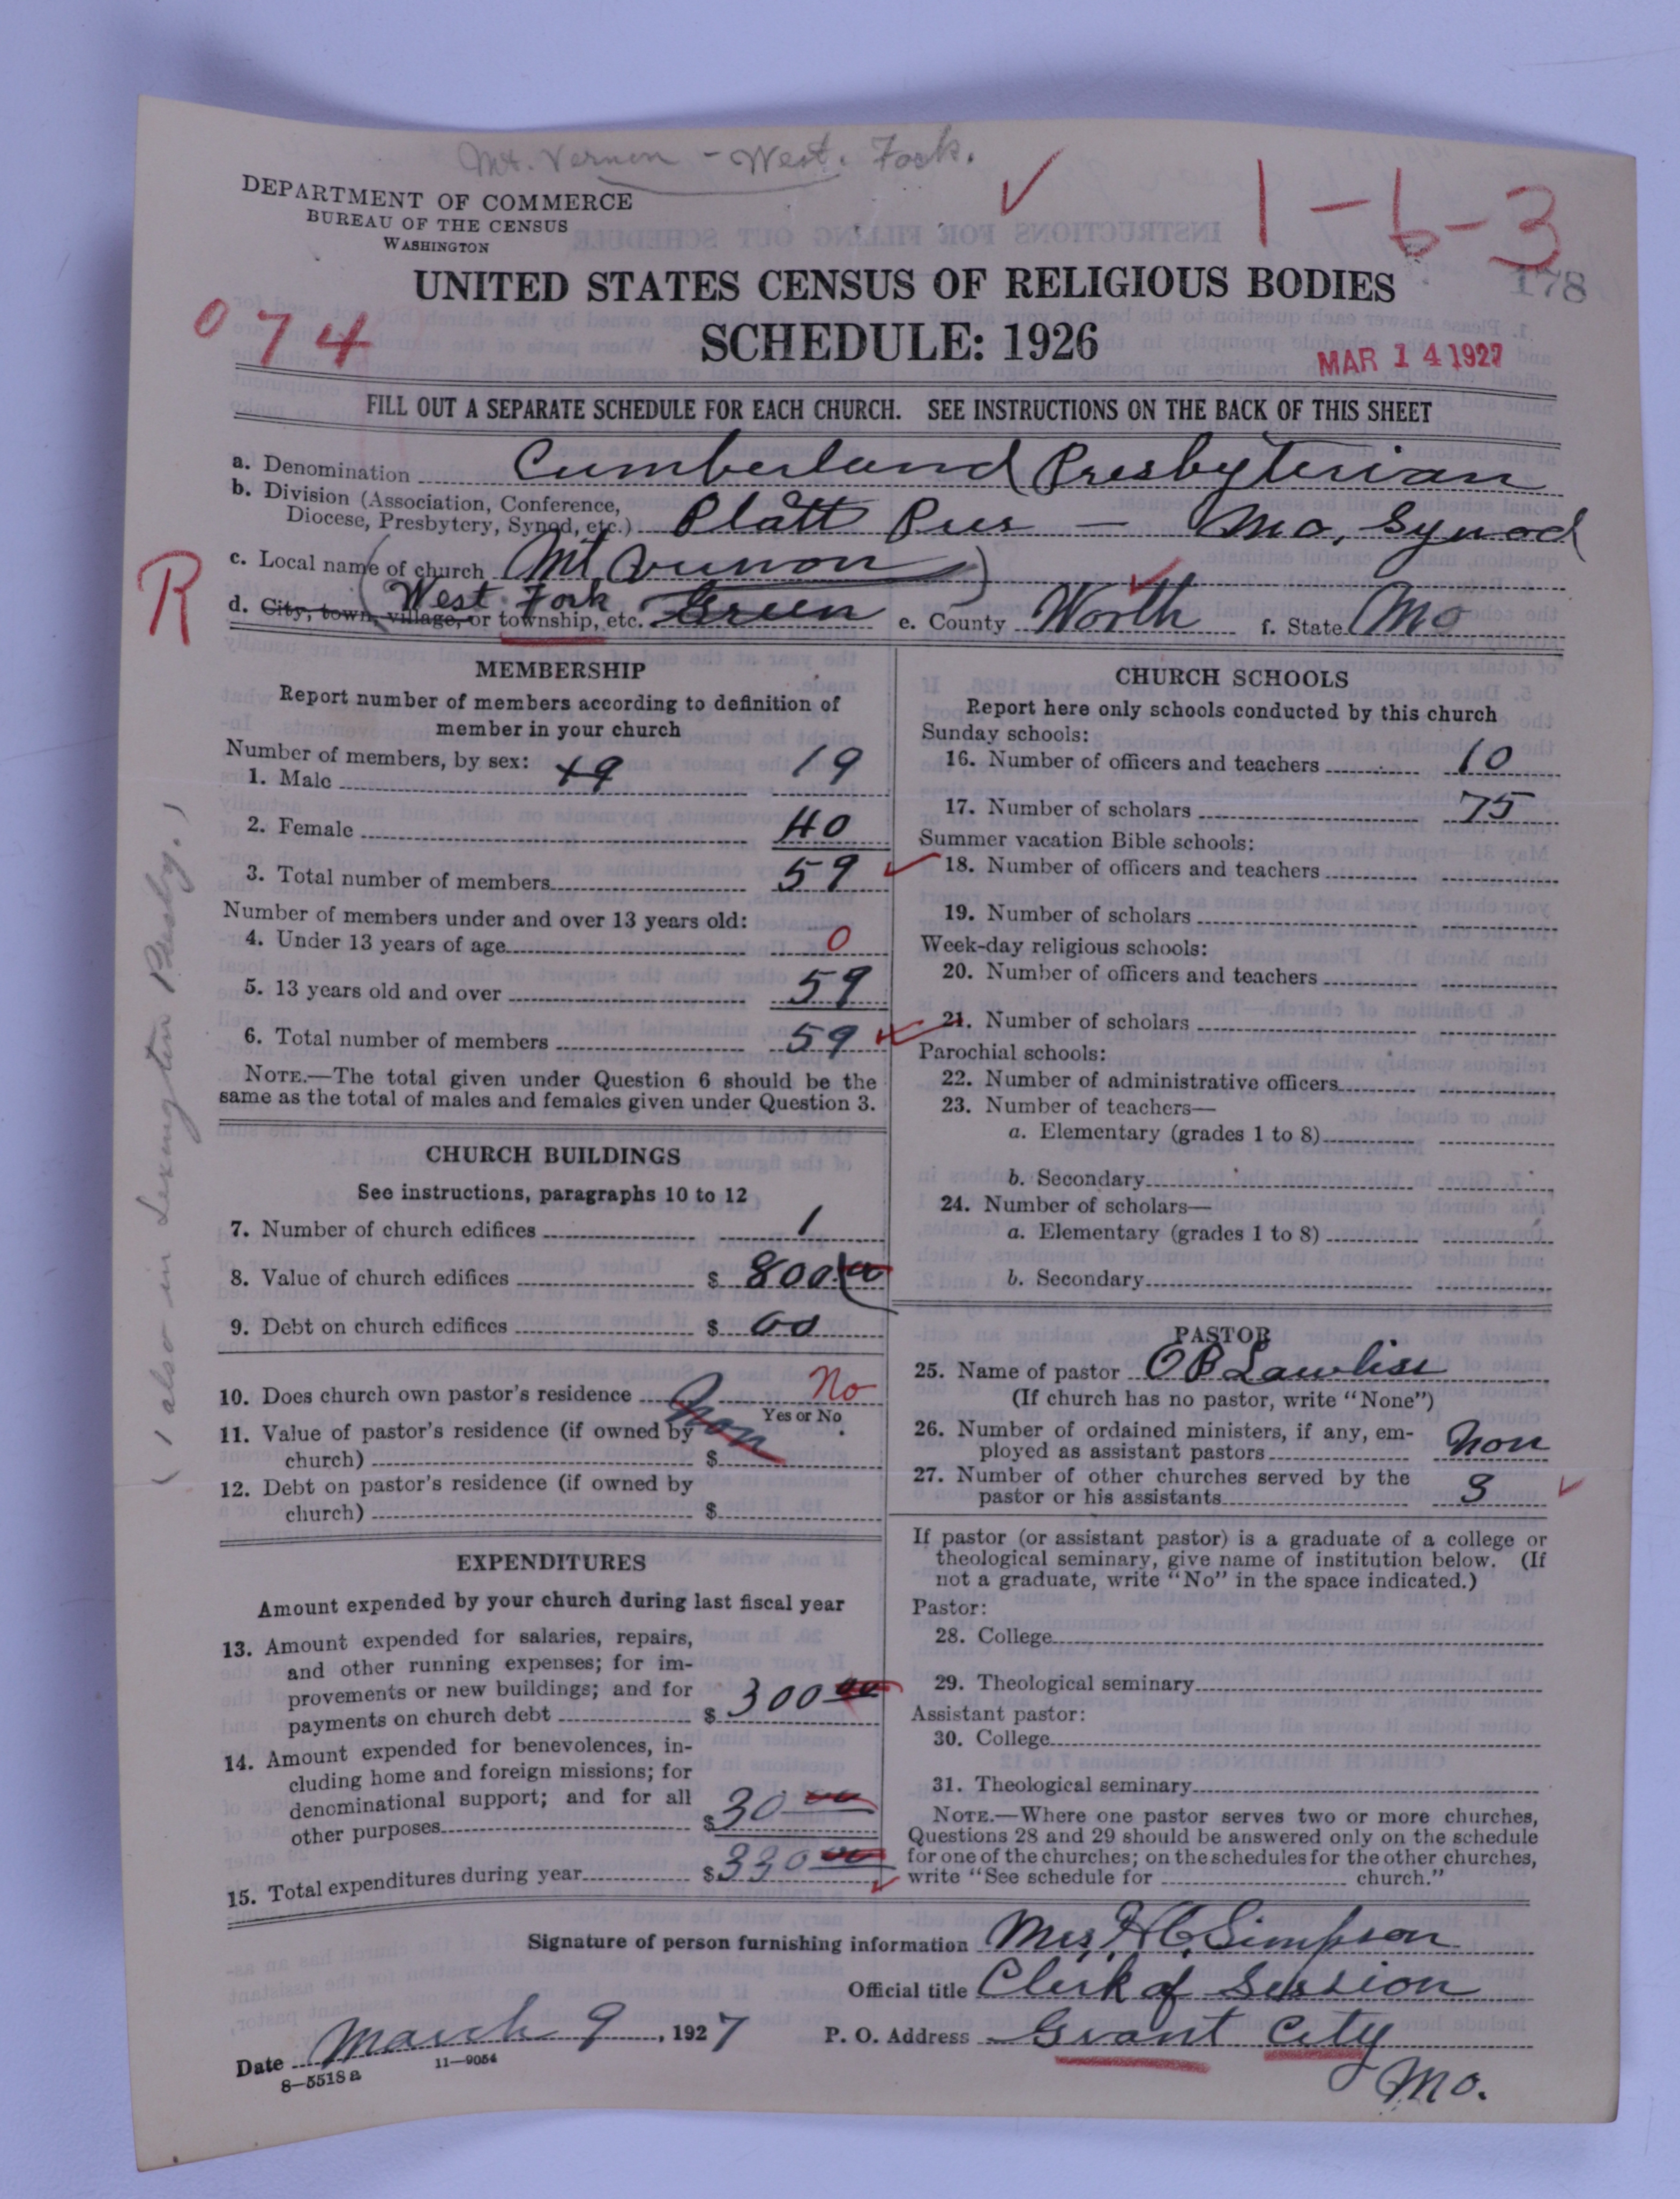 Mt. Vernon - West. Fork.
DEPARTMENT OF COMMERCE
BUREAU OF THE CENSUS
WASHINGTON
1-6-3
178
UNITED STATES CENSUS OF RELIGIOUS BODIES
074
SCHEDULE: 1926
MAR 14 1927
FILL OUT A SEPARATE SCHEDULE FOR EACH CHURCH. SEE INSTRUCTIONS ON THE BACK OF THIS SHEET
a. Denomination Cumberland Presbyterian
b. Division (Association, Conference,
Diocese, Presbytery, Synod, etc.) Platt Pres - Mo, Synod
R
c. Local name of church Mt Vernon
d. City, town, village, or township, etc. West Fork Green e. County Worth f. State Mo
MEMBERSHIP
Report number of members according to definition of
member in your church
Number of members, by sex:
1. Male 49 19
2. Female 40
3. Total number of members 59
Number of members under and over 13 years old:
4. Under 13 years of age 0
5. 13 years old and over 59
6. Total number of members 59
NOTE.—The total given under Question 6 should be the
same as the total of males and females given under Question 3.
(also in Lexington Presby.)
CHURCH BUILDINGS
See instructions, paragraphs 10 to 12
7. Number of church edifices 1
8. Value of church edifices $ 800.00
9. Debt on church edifices $ 00
10. Does church own pastor's residence Non No
Yes or No
11. Value of pastor's residence (if owned by
church) $
12. Debt on pastor's residence (if owned by
church) $
EXPENDITURES
Amount expended by your church during last fiscal year
13. Amount expended for salaries, repairs,
and other running expenses; for im-
provements or new buildings; and for
payments on church debt $ 300 00
14. Amount expended for benevolences, in-
cluding home and foreign missions; for
denominational support; and for all
other purposes $ 30 00
15. Total expenditures during year $ 330 00
CHURCH SCHOOLS
Report here only schools conducted by this church
Sunday schools:
16. Number of officers and teachers 10
17. Number of scholars 75
Summer vacation Bible schools:
18. Number of officers and teachers
19. Number of scholars
Week-day religious schools:
20. Number of officers and teachers
21. Number of scholars
Parochial schools:
22. Number of administrative officers
23. Number of teachers—
a. Elementary (grades 1 to 8)
b. Secondary
24. Number of scholars—
a. Elementary (grades 1 to 8)
b. Secondary
PASTOR
25. Name of pastor O B
(If church has no pastor, write "None")
26. Number of ordained ministers, if any, em-
ployed as assistant pastors Non
27. Number of other churches served by the
pastor or his assistants 3
If pastor (or assistant pastor) is a graduate of a college or
theological seminary, give name of institution below. (If
not a graduate, write "No" in the space indicated.)
Pastor:
28. College
29. Theological seminary
Assistant pastor:
30. College
31. Theological seminary
NOTE.—Where one pastor serves two or more churches,
Questions 28 and 29 should be answered only on the schedule
for one of the churches; on the schedules for the other churches,
write "See schedule for church."
Signature of person furnishing information Mrs, H C, Simpson
Official title Clerk of Session
Date March 9, 1927 P. O. Address Grant City
Mo.
8-5518a 11-9054